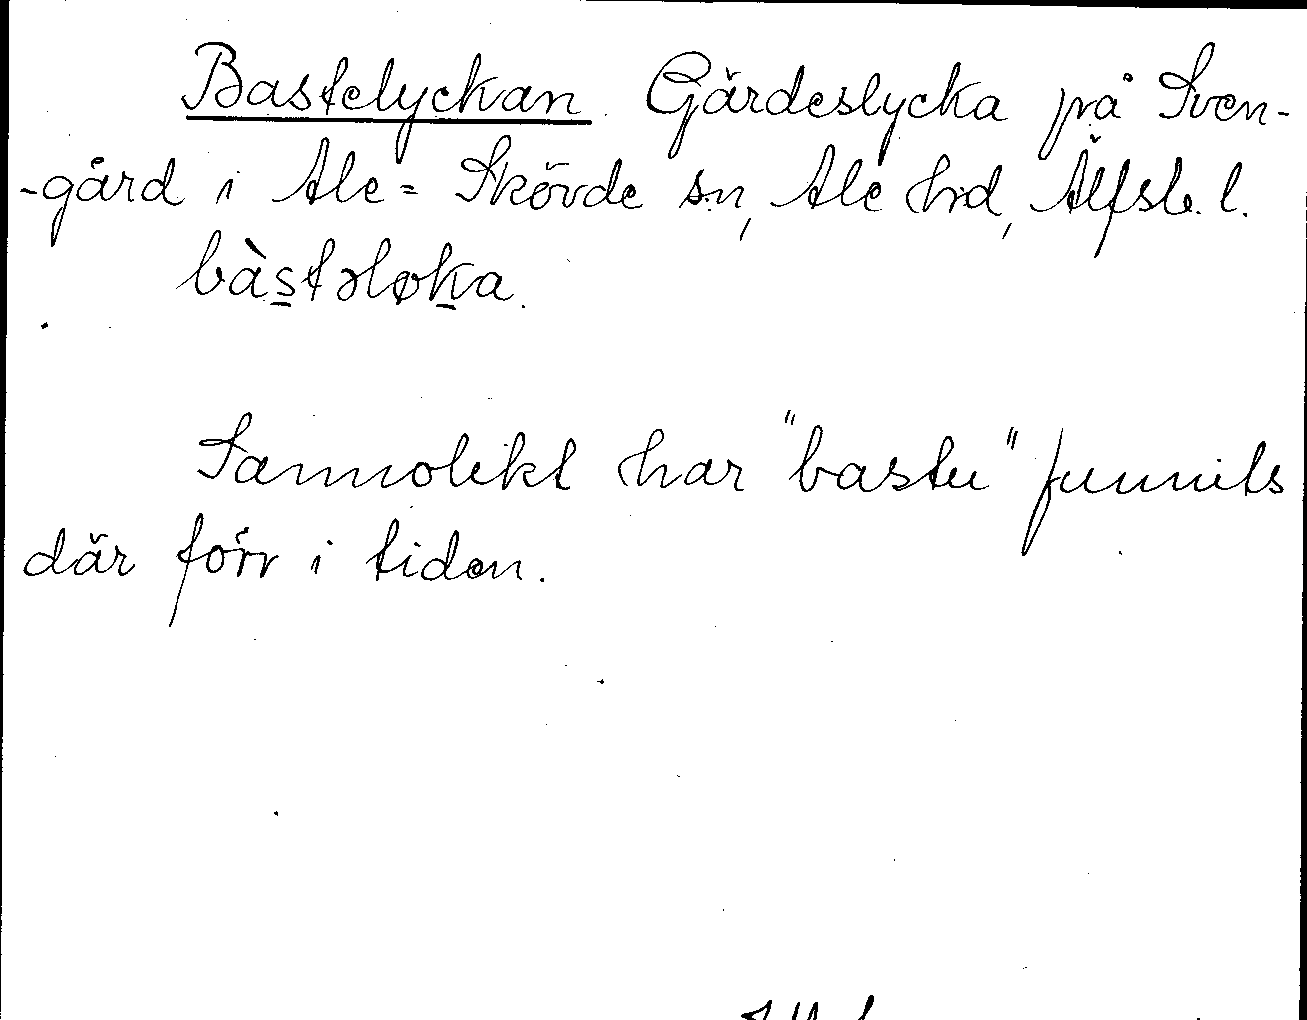 Bastelyckan Gärdeslycka på Sven-
-gård i Ale-Skövde sn, Ale hrd, Älfsb. l.
bàs̠tələk̠a.
Sannolikt har "bastu" funnits
där förr i tiden.